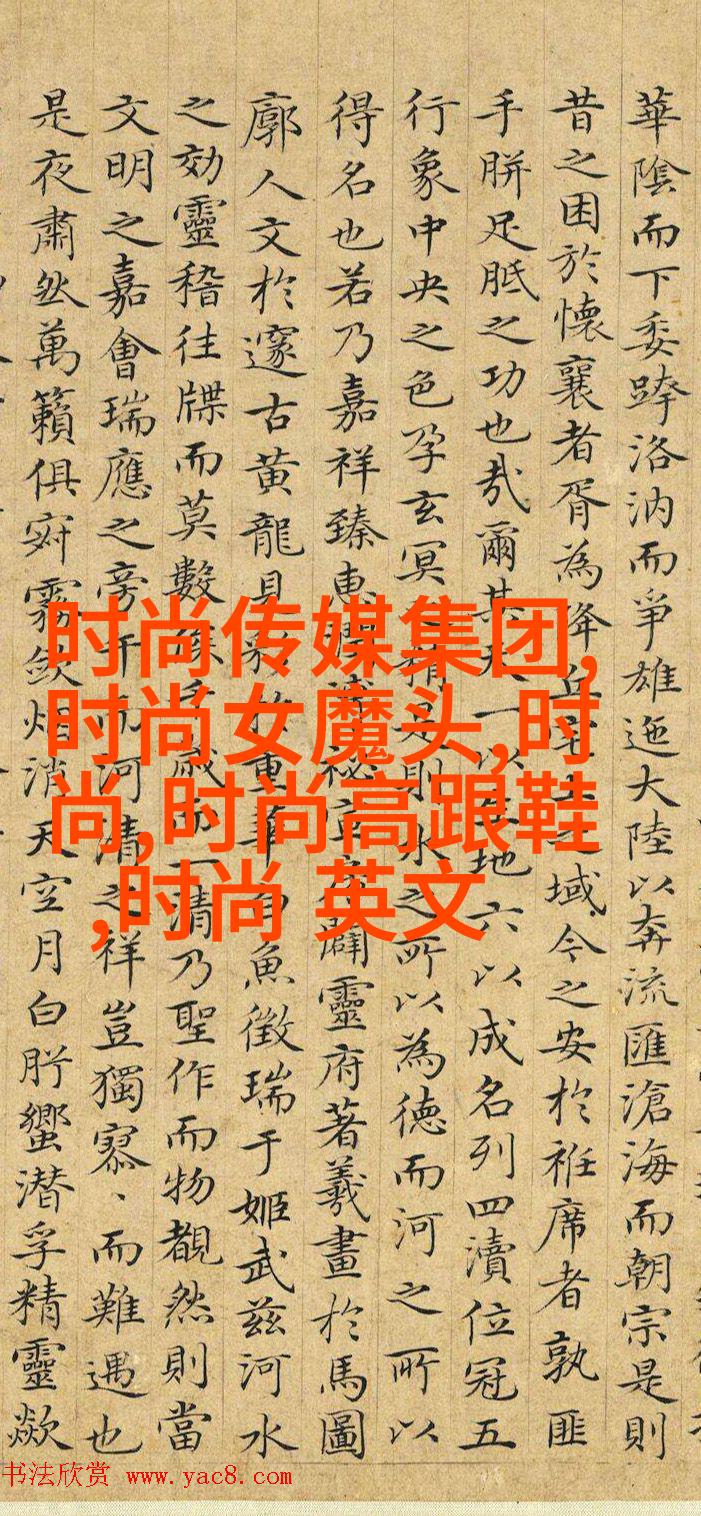 華陰而下委跨洛汭而爭雄迤大陸以奔流匯滄海而朝宗是則
昔之困於懷襄者胥為降丘宅土之域今之安於袵席者孰匪
手胼足胝之功也哉爾其天一以生地六以成名列四瀆位冠五
行象中央之色孕玄冥之精是則水之所以為德而河之所以
得名也若乃嘉祥臻惠
祕
闢靈府著羲畫於馬圖
廓人文於邃古黃龍見
重華白魚徵瑞于姬武茲河水
之効靈稽往牒而莫數
千歲而一清乃聖作而物覩然則當
文明之嘉會瑞應之旁
河清之祥豈獨寥、而難遇也
是夜肅然萬籟俱寂霧斂烟消天空月白肸蠁潛孚精靈歘
时尚传媒集团,
时尚女魔头,时
尚,时尚高跟鞋
,时尚 英文
书法欣赏 www.yac8.com